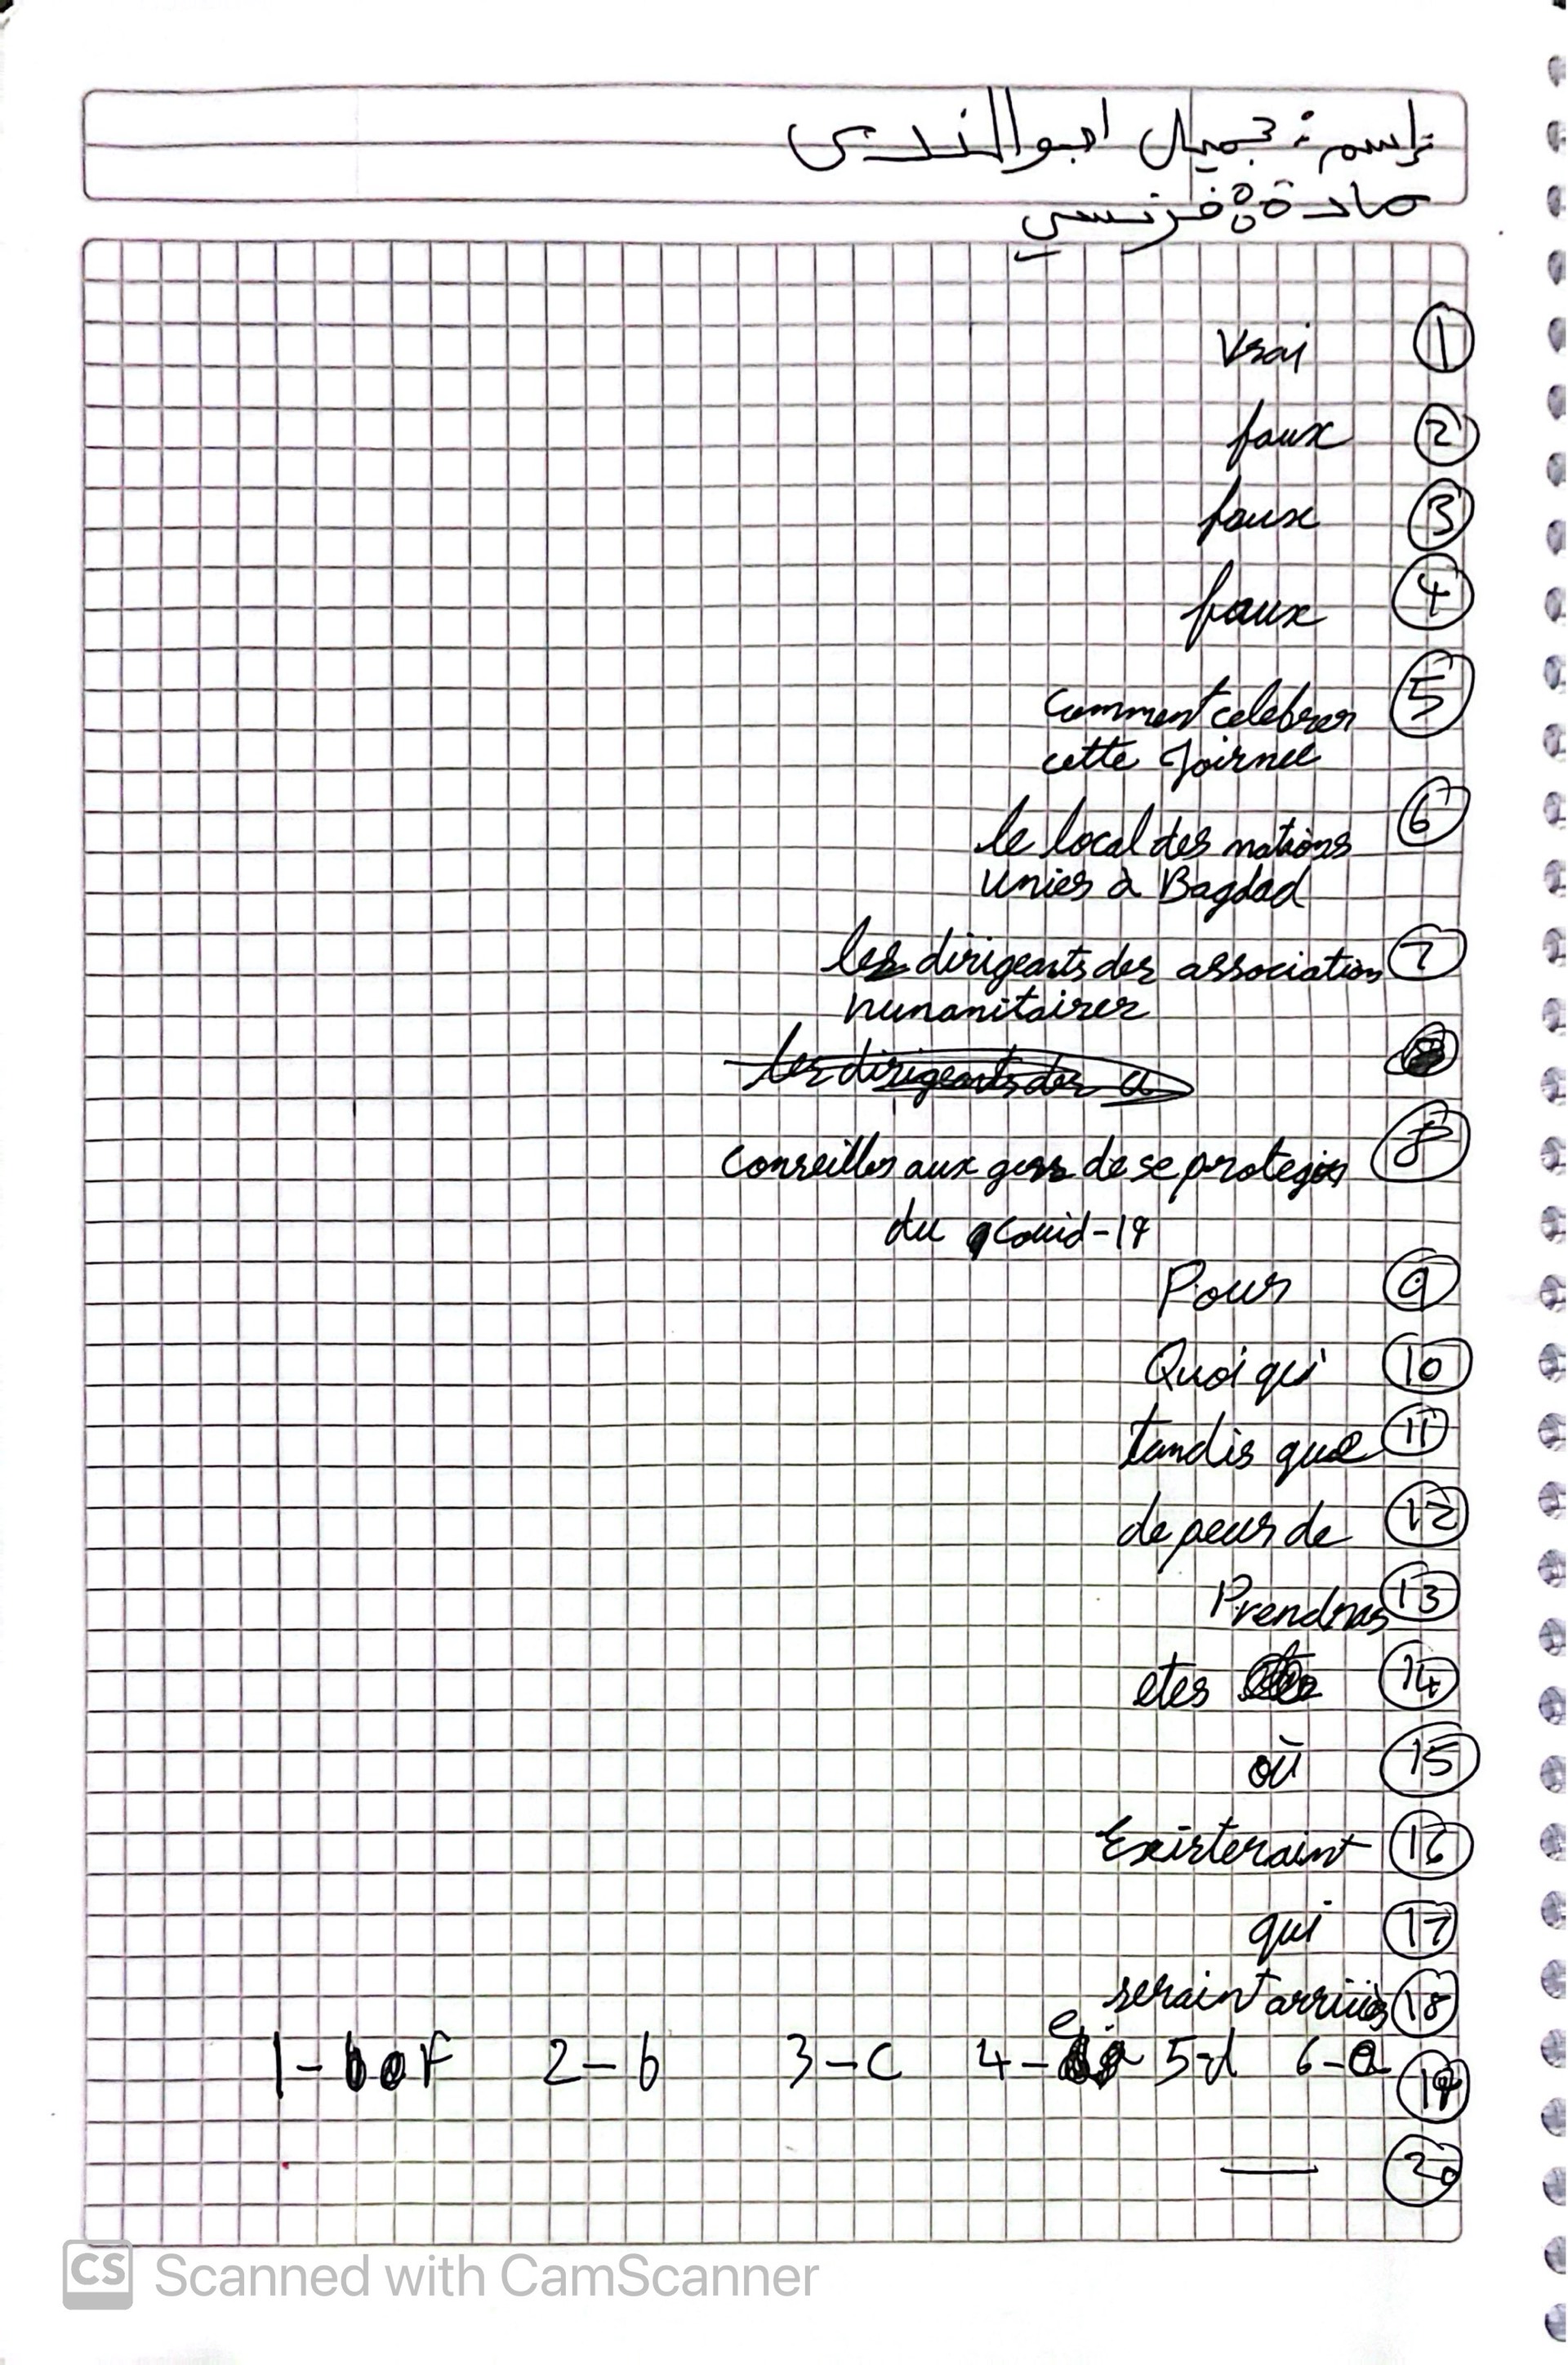 إسم : جميل ابو الندى
مادة : فرنسي
Vrai ①
faux ②
faux ③
faux ④
comment celebrer ⑤
cette Joirnee
le local des nations ⑥
unies à Bagdad
les dirigeants des association ⑦
humanitaires
les dirigeants des a
conseilles aux gens de se proteger ⑧
du covid-19
Pour ⑨
Quoi qui ⑩
tandis que ⑪
de peur de ⑫
Prendras ⑬
etes ⑭
où ⑮
Existeraint ⑯
qui ⑰
seraint arrivés ⑱
1-F 2-b 3-c 4-e 5-d 6-a ⑲
— ⑳
CS Scanned with CamScanner